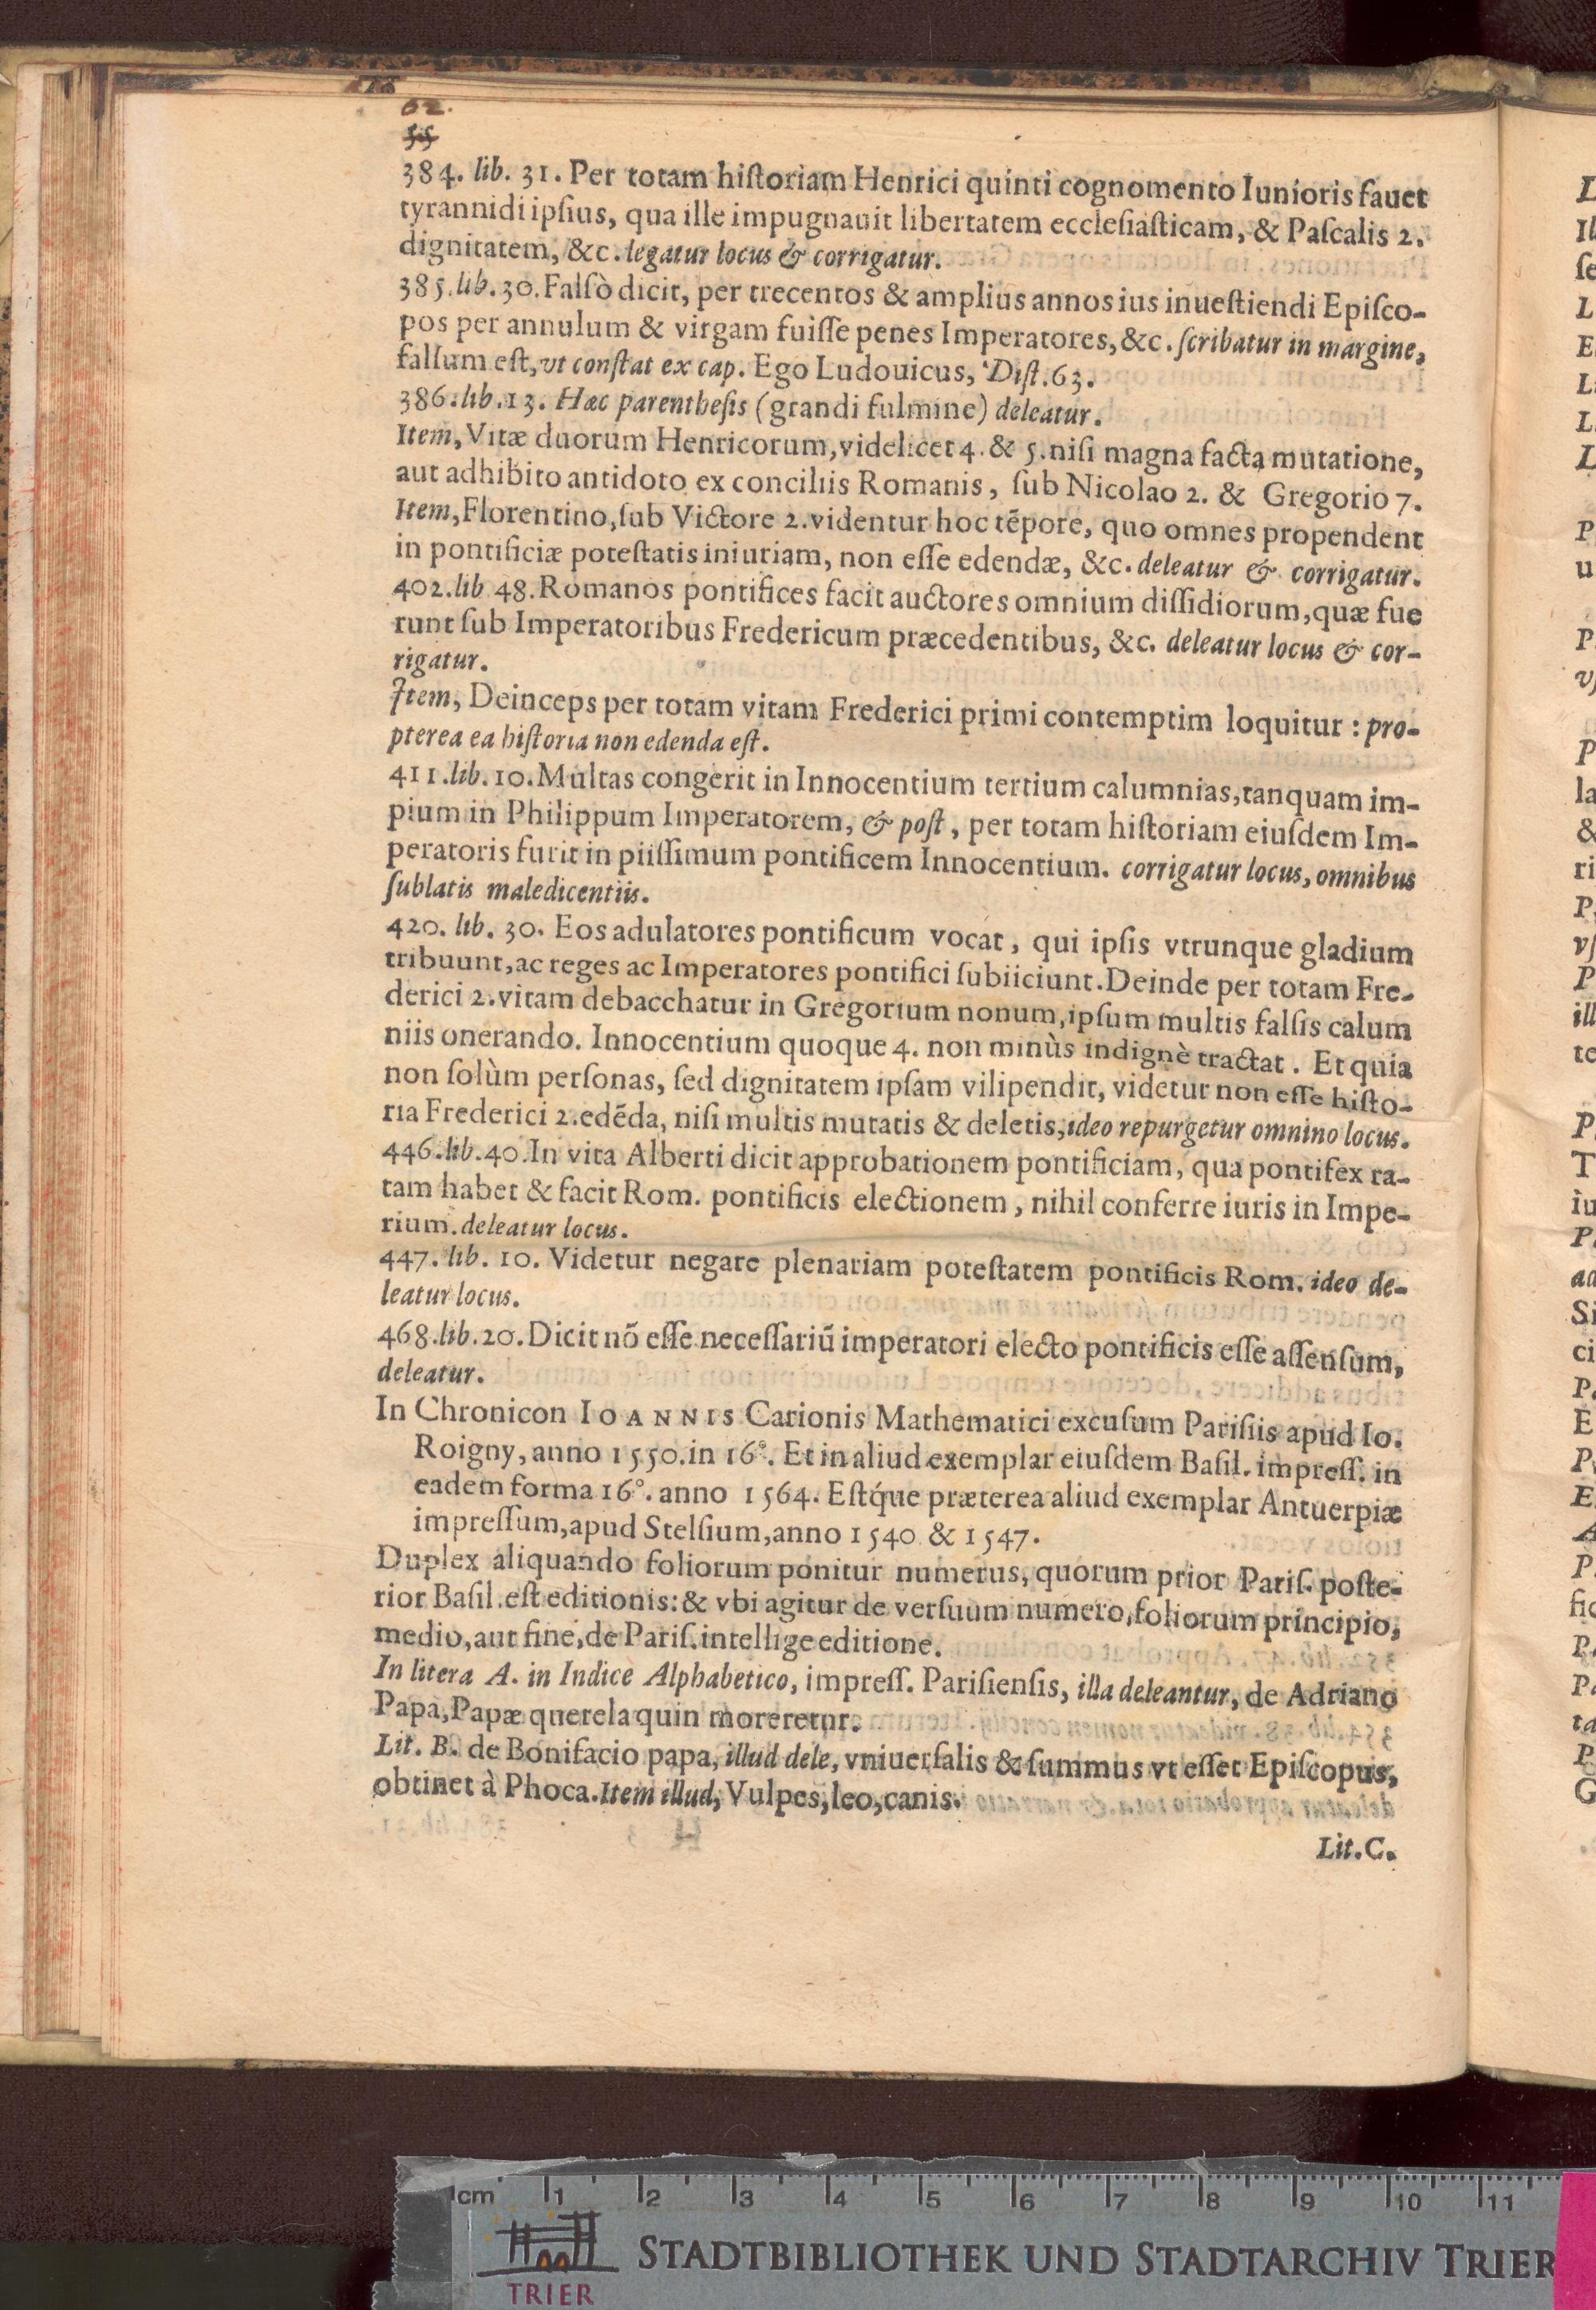 62.
55
384. lib. 31. Per totam hiſtoriam Henrici quinti cognomento Iunioris fauet
tyrannidi ipſius, qua ille impugnauit libertatem eccleſiaſticam, & Paſcalis 2.
dignitatem, &c. legatur locus & corrigatur.
385. lib. 30. Falsò dicit, per trecentos & amplius annos ius inueſtiendi Epiſco-
pos per annulum & virgam fuiſſe penes Imperatores, &c. ſcribatur in margine,
falſum eſt, vt conſtat ex cap. Ego Ludouicus, Diſt. 63.
386. lib. 13. Hæc parentheſis (grandi fulmine) deleatur.
Item, Vitæ duorum Henricorum, videlicet 4. & 5. niſi magna facta mutatione,
aut adhibito antidoto ex conciliis Romanis, ſub Nicolao 2. & Gregorio 7.
Item, Florentino, ſub Victore 2. videntur hoc tẽpore, quo omnes propendent
in pontificiæ poteſtatis iniuriam, non eſſe edendæ, &c. deleatur & corrigatur.
402. lib 48. Romanos pontifices facit auctores omnium diſſidiorum, quæ fue
runt ſub Imperatoribus Fredericum præcedentibus, &c. deleatur locus & cor-
rigatur.
Item, Deinceps per totam vitam Frederici primi contemptim loquitur : pro-
pterea ea hiſtoria non edenda eſt.
411. lib. 10. Multas congerit in Innocentium tertium calumnias, tanquam im-
pium in Philippum Imperatorem, & poſt, per totam hiſtoriam eiuſdem Im-
peratoris furit in piiſſimum pontificem Innocentium. corrigatur locus, omnibus
ſublatis maledicentiis.
420. lib. 30. Eos adulatores pontificum vocat, qui ipſis vtrunque gladium
tribuunt, ac reges ac Imperatores pontifici ſubiiciunt. Deinde per totam Fre-
derici 2. vitam debacchatur in Gregorium nonum, ipſum multis falſis calum
niis onerando. Innocentium quoque 4. non minùs indignè tractat. Et quia
non ſolùm perſonas, ſed dignitatem ipſam vilipendit, videtur non eſſe hiſto-
ria Frederici 2. edẽda, niſi multis mutatis & deletis, ideo repurgetur omnino locus.
446. lib. 40. In vita Alberti dicit approbationem pontificiam, qua pontifex ra-
tam habet & facit Rom. pontificis electionem, nihil conferre iuris in Impe-
rium. deleatur locus.
447. lib. 10. Videtur negare plenariam poteſtatem pontificis Rom. ideo de-
leatur locus.
468. lib. 20. Dicit nõ eſſe neceſſariũ imperatori electo pontificis eſſe aſſenſum,
deleatur.
In Chronicon IOANNIS Carionis Mathematici excuſum Pariſiis apud Io.
Roigny, anno 1550. in 16°. Et in aliud exemplar eiuſdem Baſil. impreſſ. in
eadem forma 16°. anno 1564. Eſtq́ue præterea aliud exemplar Antuerpiæ
impreſſum, apud Stelſium, anno 1540 & 1547.
Duplex aliquando foliorum ponitur numerus, quorum prior Pariſ. poſte-
rior Baſil. eſt editionis: & vbi agitur de verſuum numero, foliorum principio,
medio, aut fine, de Pariſ. intellige editione.
In litera A. in Indice Alphabetico, impreſſ. Pariſienſis, illa deleantur, de Adriano
Papa, Papæ querela quin moreretur.
Lit. B. de Bonifacio papa, illud dele, vniuerſalis & ſummus vt eſſet Epiſcopus,
obtinet à Phoca. Item illud, Vulpes, leo, canis.
Lit. C.
cm 1 2 3 4 5 6 7 8 9 10 11
STADTBIBLIOTHEK UND STADTARCHIV TRIER
TRIER